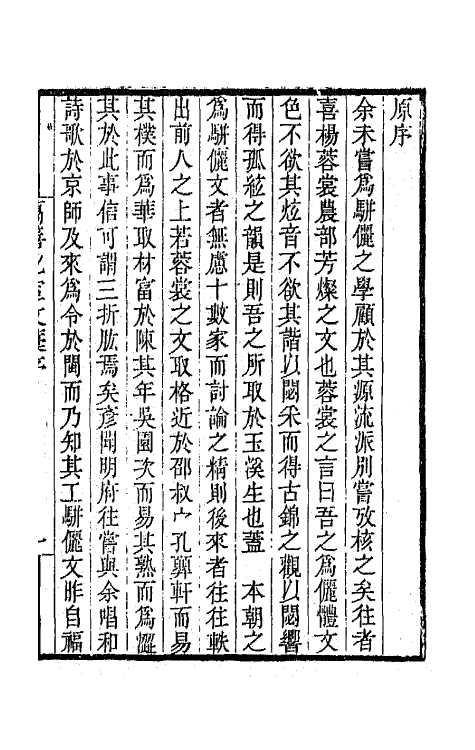 原序
余未嘗爲駢儷之學顧於其源流派別嘗攷核之矣往者
喜楊蓉裳農部芳燦之文也蓉裳之言曰吾之爲儷體文
色不欲其炫音不欲其諧以閟采而得古錦之觀以閟響
而得孤絃之韻是則吾之所取於玉溪生也蓋 本朝之
爲駢儷文者無慮十數家而討論之精則後來者往往軼
出前人之上若蓉裳之文取格近於邵叔宀孔顨軒而易
其樸而爲華取材富於陳其年吳園次而易其熟而爲澀
其於此事信可謂三折肱焉矣彥聞明府往嘗與余唱和
詩歌於京師及來爲令於閩而乃知其工駢儷文昨自福
萬善花室文藁序
一